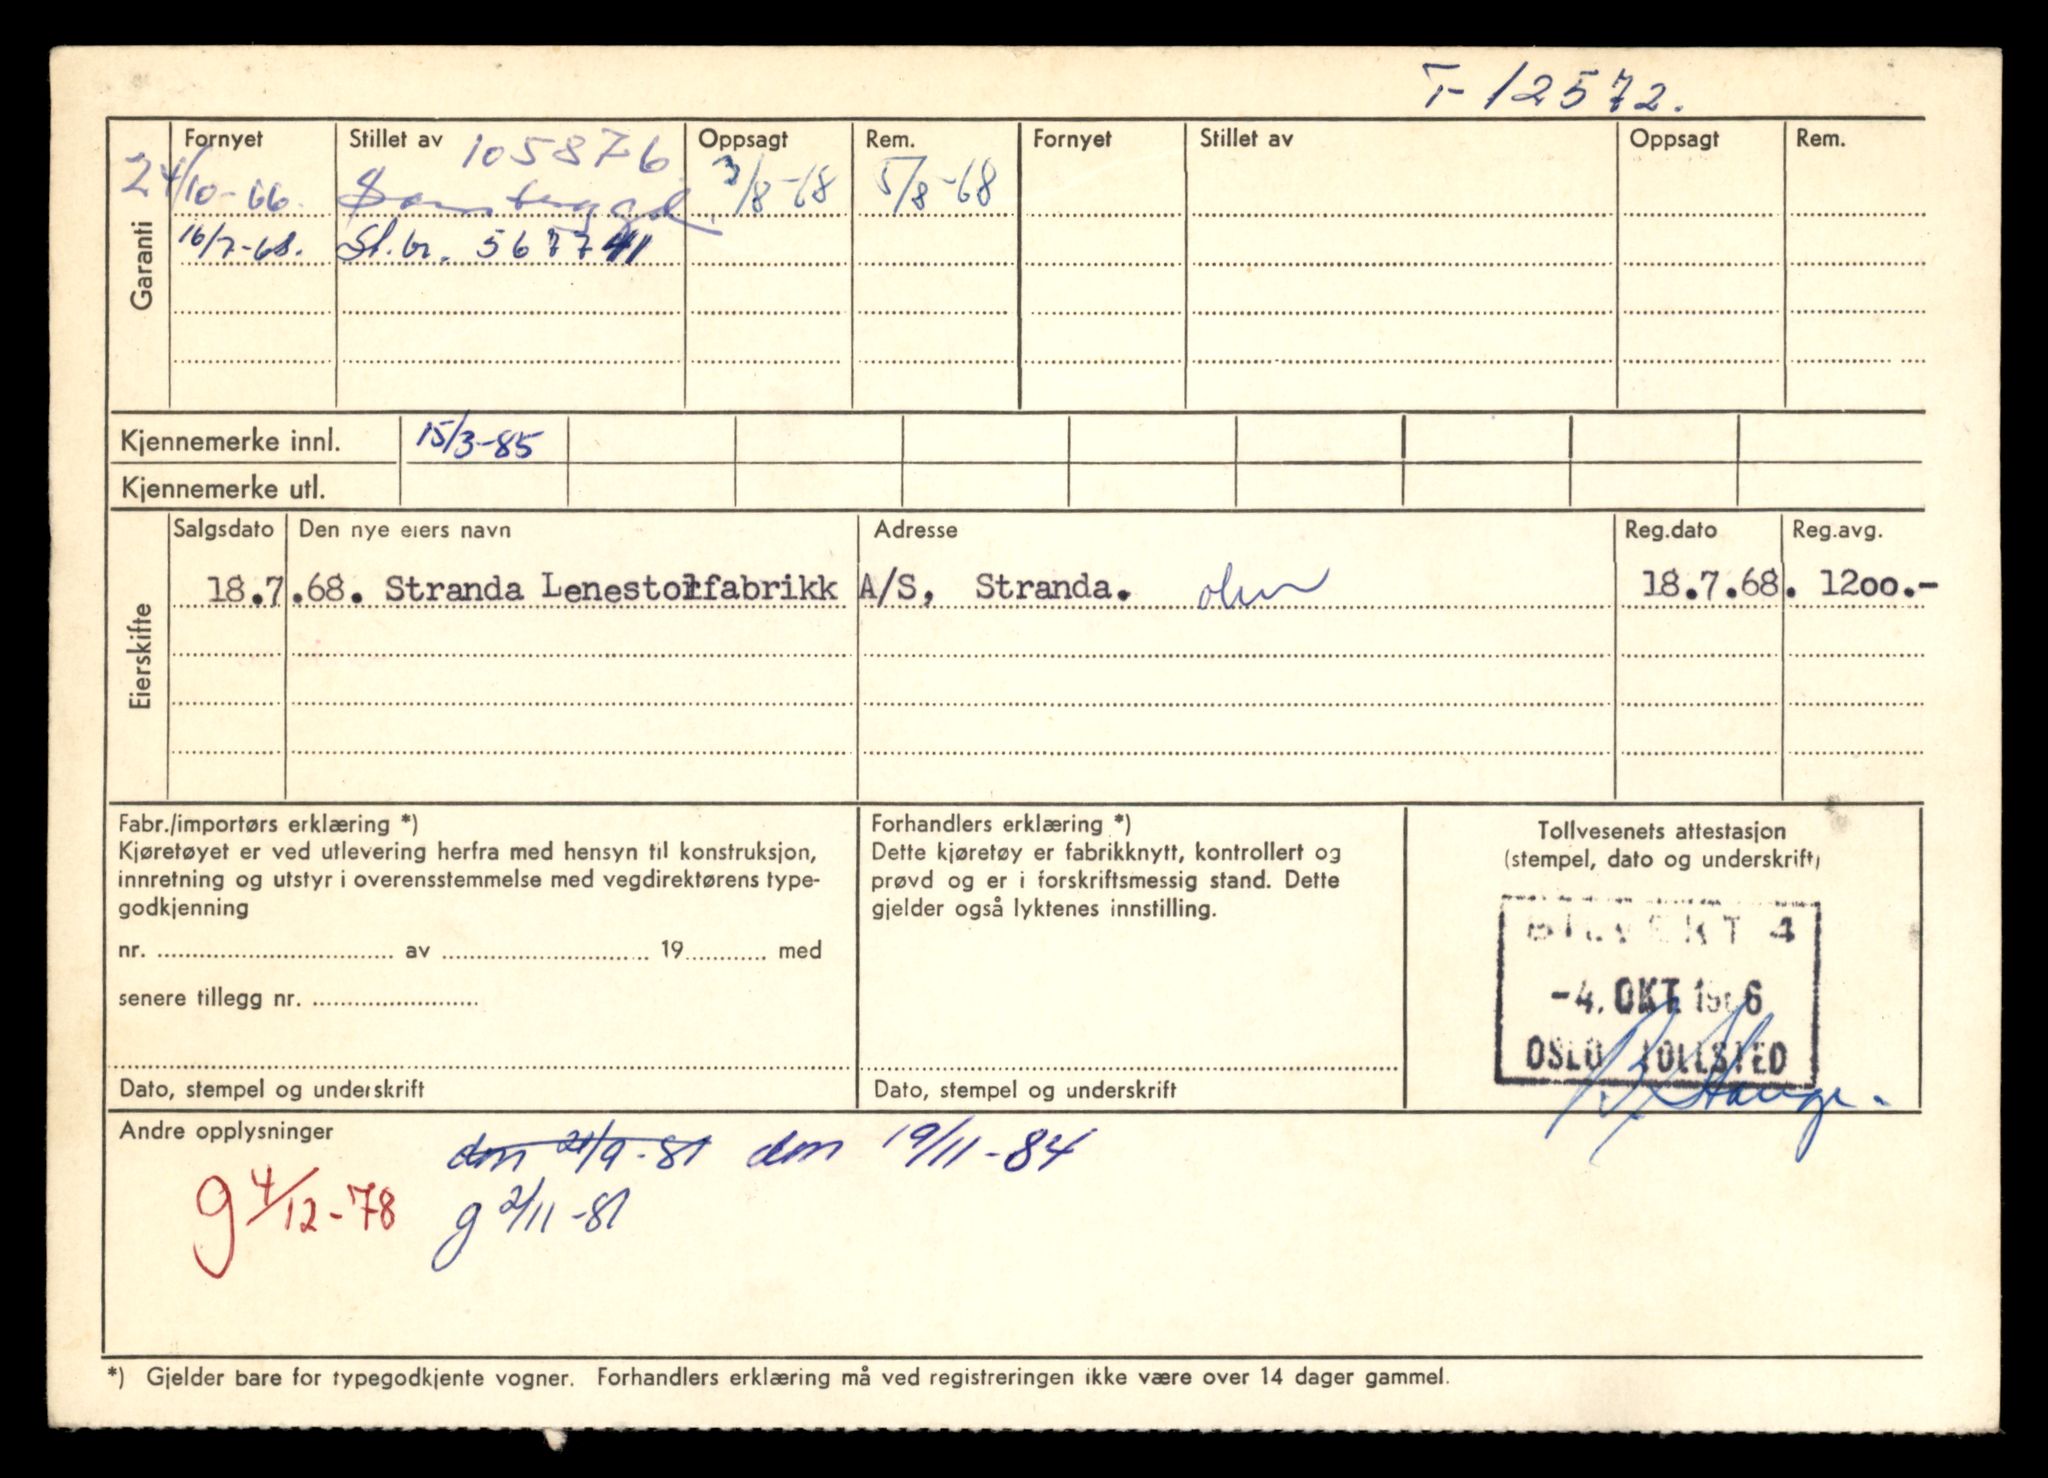 T-12572.
Garanti
Fornyet Stillet av 105876 Oppsagt Rem. Fornyet Stillet av Oppsagt Rem.
24/10-66. Samtrygd 3/8-68 5/8-68
16/7-68. St.br. 567741
Kjennemerke innl. 15/3-85
Kjennemerke utl.
Eierskifte
Salgsdato Den nye eiers navn Adresse Reg.dato Reg.avg.
18.7.68. Stranda Lenestolfabrikk A/S, Stranda. 18.7.68. 1200.-
Fabr./importørs erklæring *)
Kjøretøyet er ved utlevering herfra med hensyn til konstruksjon,
innretning og utstyr i overensstemmelse med vegdirektørens type-
godkjenning
nr. av 19 med
senere tillegg nr.
Dato, stempel og underskrift
Forhandlers erklæring *)
Dette kjøretøy er fabrikknytt, kontrollert og
prøvd og er i forskriftsmessig stand. Dette
gjelder også lyktenes innstilling.
Dato, stempel og underskrift
Tollvesenets attestasjon
(stempel, dato og underskrift)
-4. OKT 1966
OSLO TOLLSTED
Andre opplysninger
dm 21/9-81 dm 19/11-84
g 4/12-78 g 2/11-81
*) Gjelder bare for typegodkjente vogner. Forhandlers erklæring må ved registreringen ikke være over 14 dager gammel.